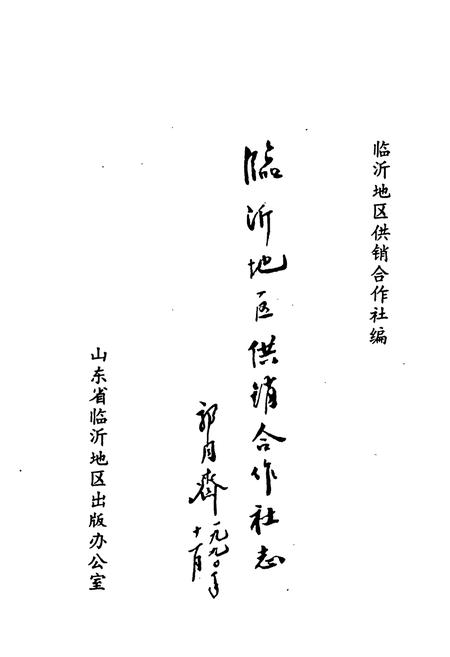 临沂地区供销合作社编
临沂地区供销合作社志
郭月齋
一九九〇年
十一月
山东省临沂地区出版办公室